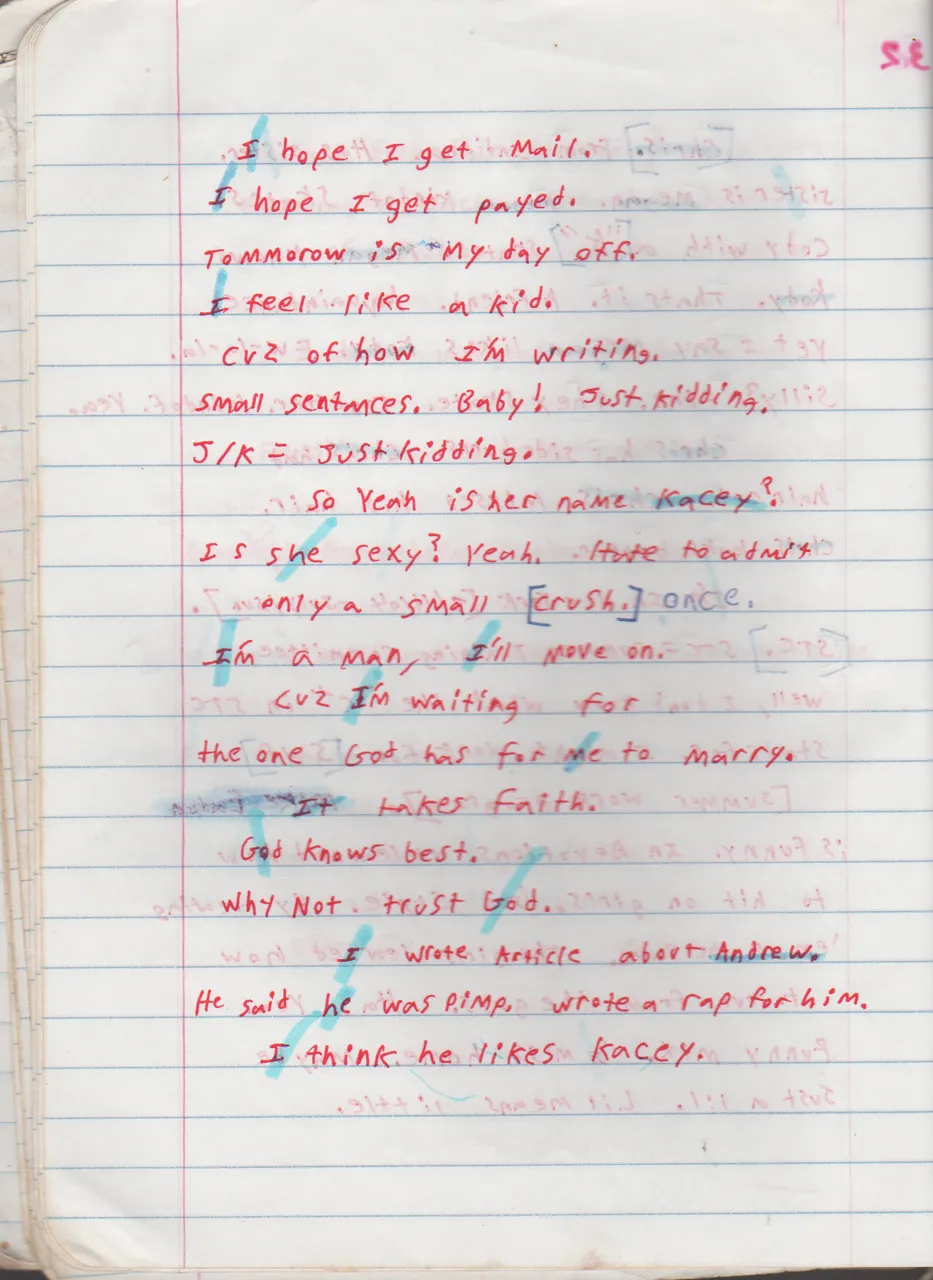 I hope I get Mail.
I hope I get payed.
Tommorow is My day off.
I feel like a kid.
cuz of how I'm writing.
small sentnces. Baby! Just kidding.
J/K = Just kidding.
So Yeah is her name Kacey?
Is she sexy? Yeah. Hate to admit
only a small [crush.] once.
I'm a man, I'll move on.
cuz I'm waiting for
the one God has for me to marry.
It takes faith.
God knows best.
Why Not. trust God.
I wrote Article about Andrew.
He said he was P.iMP. wrote a rap for him.
I think he likes Kacey.